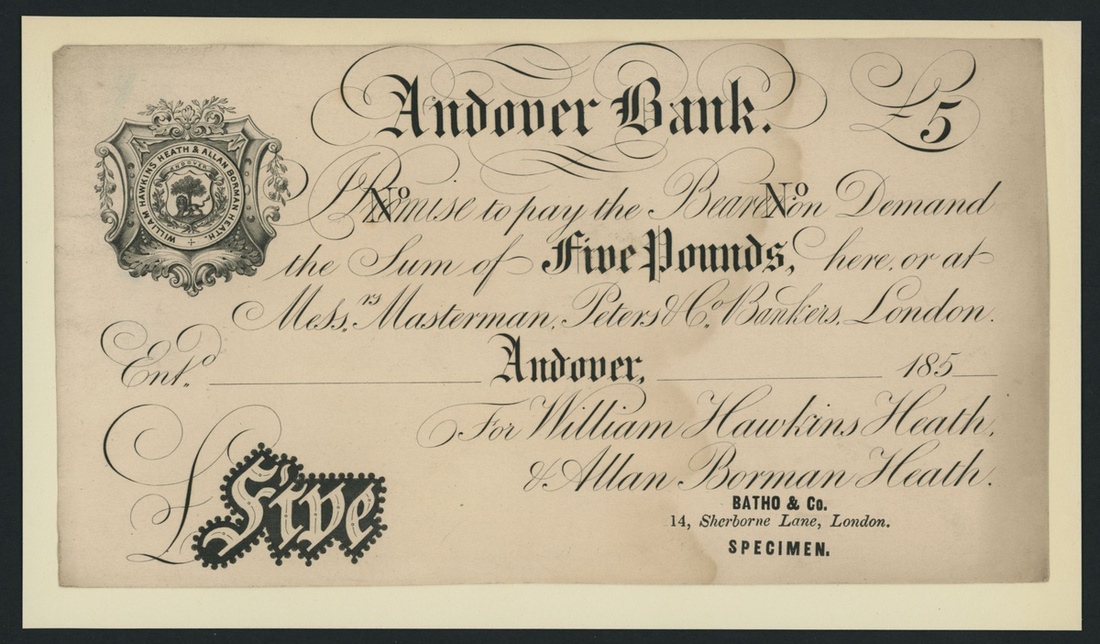 Andover Bank. £5
WILLIAM HAWKINS HEATH & ALLAN BORMAN HEATH.
ANDOVER
No No
I Promise to pay the Bearer on Demand
the Sum of Five Pounds, here, or at
Messrs. Masterman, Peters & Co. Bankers, London.
Entd. Andover, 185
For William Hawkins Heath,
& Allan Borman Heath.
£ Five
BATHO & Co.
14, Sherborne Lane, London.
SPECIMEN.